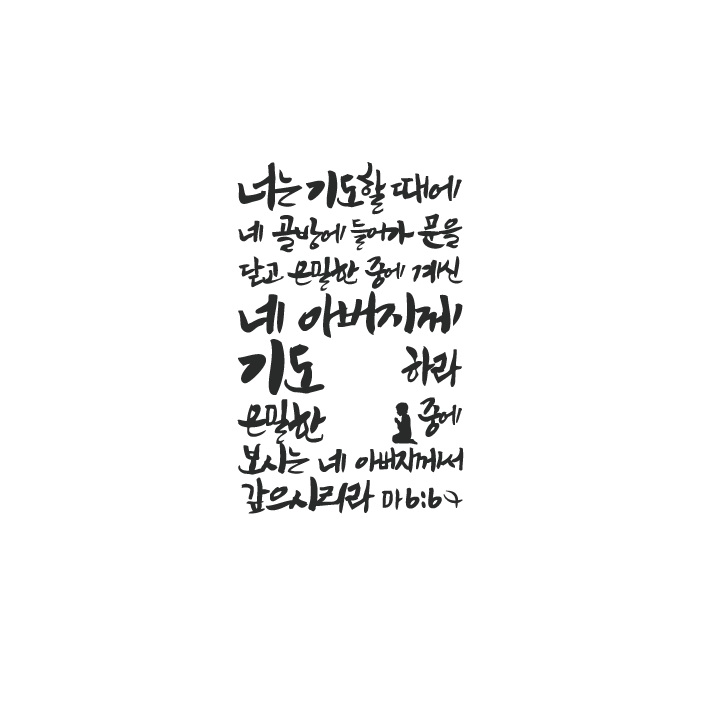 너는 기도할 때에
네 골방에 들어가 문을
닫고 은밀한 중에 계신
네 아버지께
기도 하라
은밀한 중에
보시는 네 아버지께서
갚으시리라 마6:6